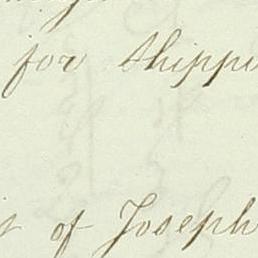 for shippi
of Joseph